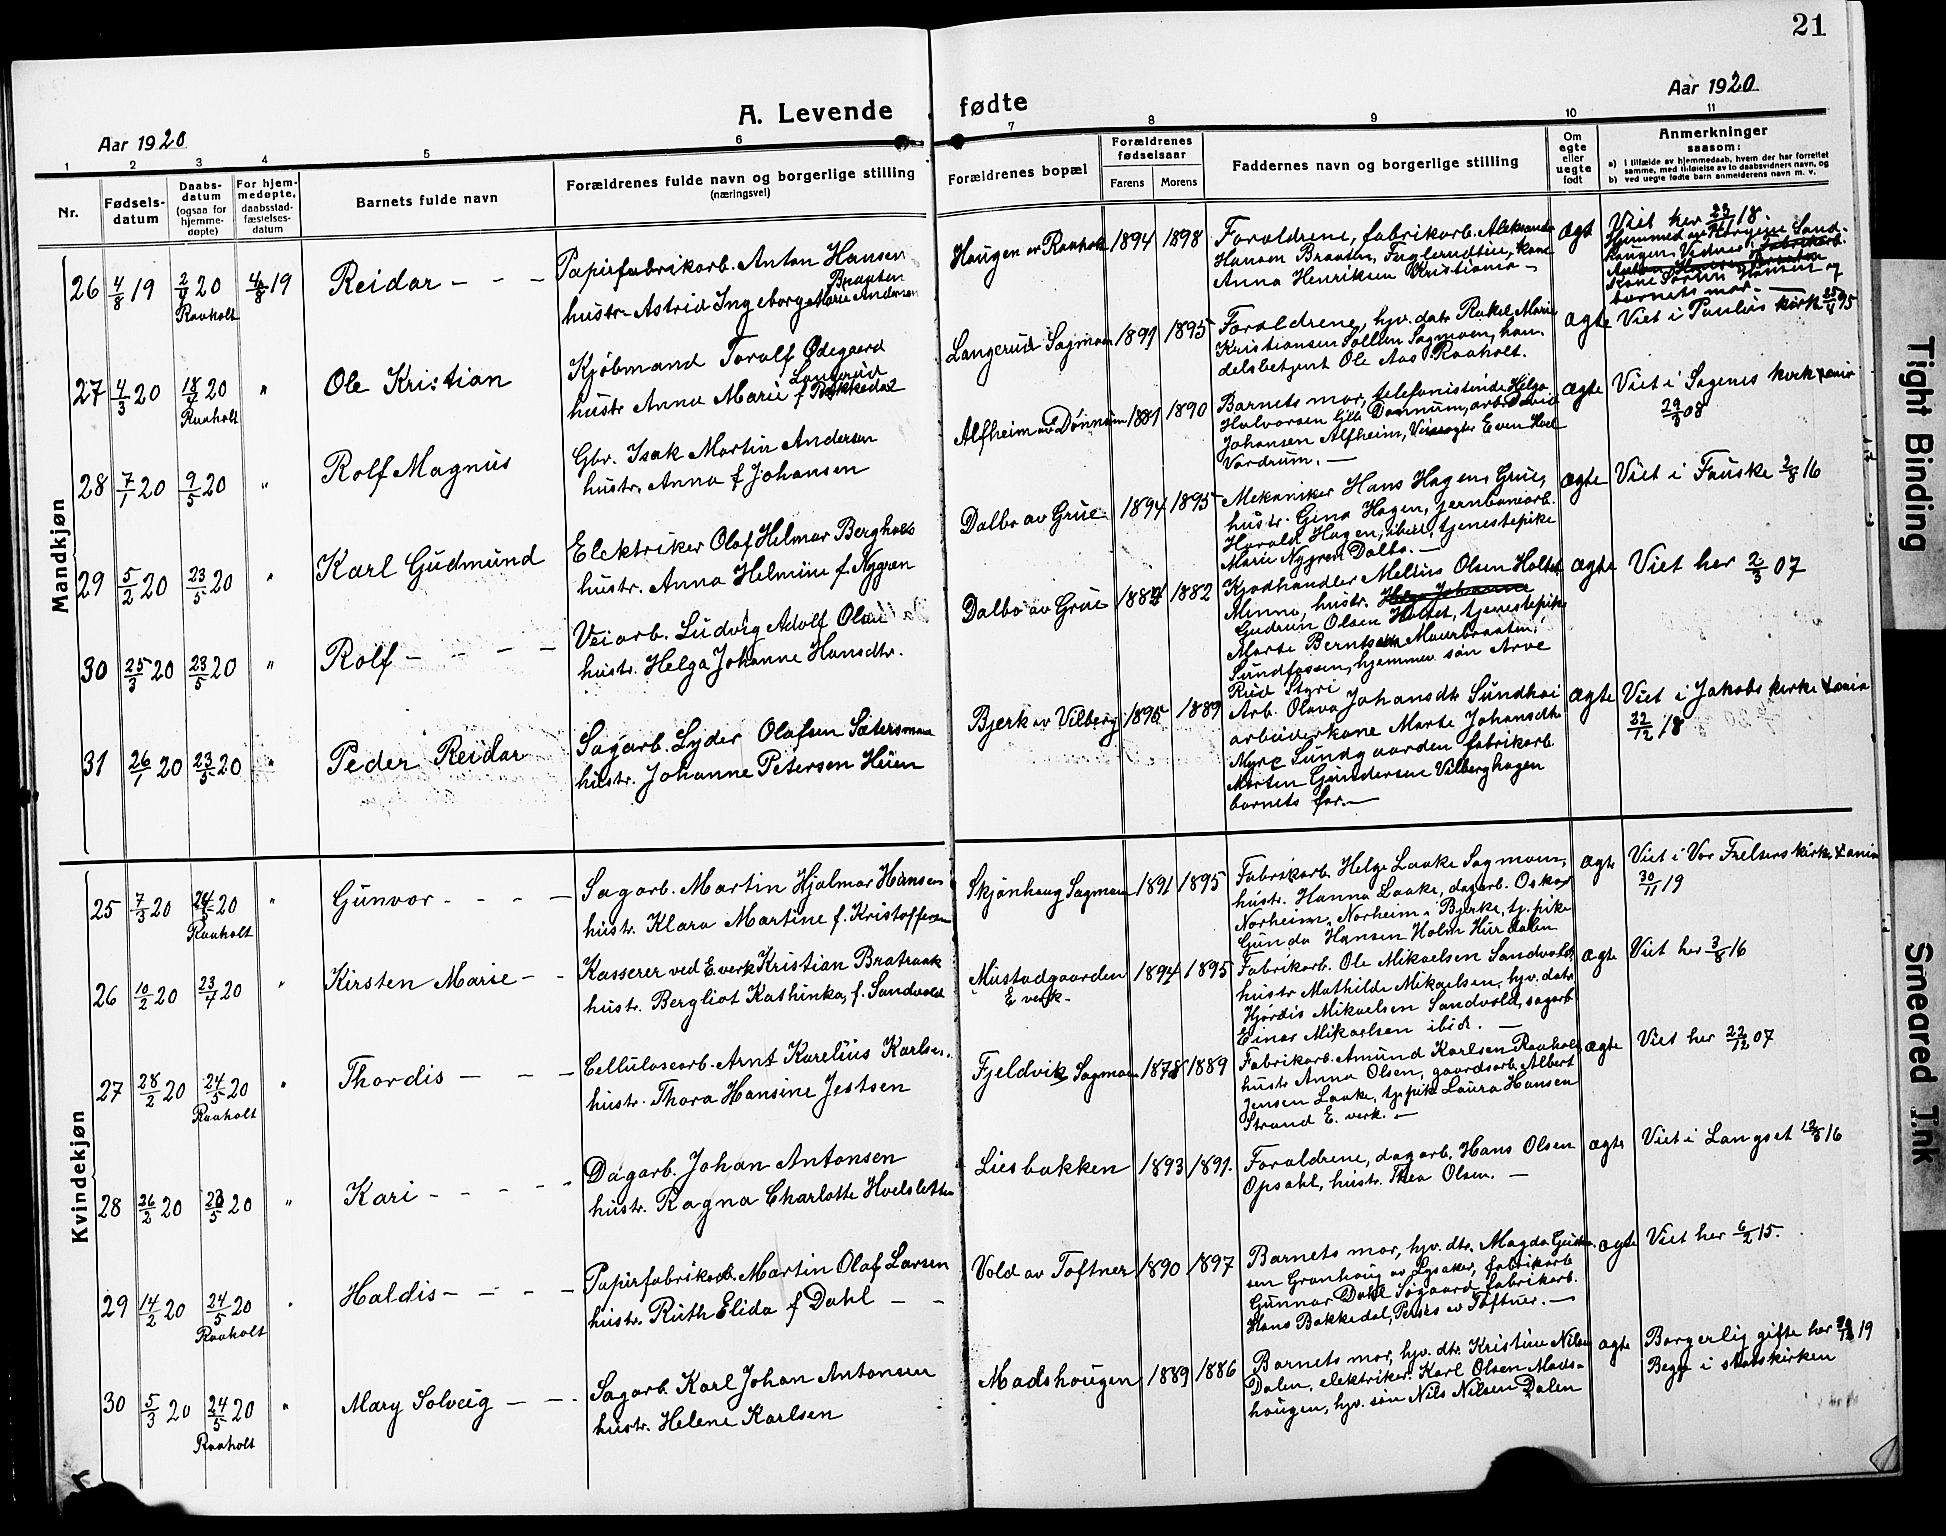 21
A. Levende fødte
Aar 1920
Aar 1920
1 2 3 4 5 6 7 8 9 10 11
Nr.
Fødsels-
datum
Daabs-
datum
(ogsaa for
hjemme-
døpte)
For hjem-
medøpte,
daabsstad-
fæstelses-
datum
Barnets fulde navn
Forældrenes fulde navn og borgerlige stilling
(næringsvei)
Forældrenes bopæl
Forældrenes
fødselsaar
Farens
Morens
Faddernes navn og borgerlige stilling
Om
egte
eller
uegte
født
Anmerkninger
saasom:
a) i tilfælde av hjemmedaab, hvem der har forrettet
samme, med tilføielse av to daabsvidners navn, og
b) ved uegte fødte barn anmelderens navn m. v.
Mandkjøn
26 4/8 19 2/4 20 4/8 19 Reidar - - -
Raaholt
Papirfabrikarb. Anton Hansen
Braaten
hustr. Astrid Ingeborg Marie Andersen
Haugen av Raaholt 1894 1898
Foraldrene, fabrikarb. Aleksander
Hansen Braaten, Fuglerudtien, kone
Anna Henriksen Kristiania -
ægt
Viet her 23/11 18.
Kone Sorine Hansen og
barnets mor. -
27 4/3 20 18/4 20 " Ole Kristian
Raaholt
Kjøbmand Toralf Ødegaard
Langerud
hustr. Anna Marie f. Bakkedal
Langerud Sagmoen 1891 1895
Foraldrene, hjv. datr. Rakel Marie
Kristiansen Sollien Sagmoen, han-
delsbetjent Ole Aas Raaholt.
ægte
Viet i Paulus kirke 25/4 95
28 7/1 20 9/5 20 " Rolf Magnus
Gbr. Isak Martin Andersen
hustr. Anna f Johansen
Alfheim av Dønnum 1881 1890
Barnets mor, telefonistinde Helga
Halvorsen Gili Dønnum, arb. David
Johansen Alfheim, Veivogter Even Hoel
Vordrum. -
ægte
Viet i Sagenes kirke Xania
29/3 08
29 5/2 20 23/5 20 " Karl Gudmund
Elektriker Olaf Helmar Berghols
hustr. Anna Helmine f. Nygren
Dalbo av Grue 1894 1895
Mekaniker Hans Hagen, Grue,
hustr. Gina Hagen, jernbanearb.
Harald Hagen, ibid., tjenestepike
Marie Nygren Dalbo. -
ægte
Viet i Fauske 2/8 16
30 25/3 20 23/5 20 " Rolf - - - -
Veiarb. Ludvig Adolf Olsen
hustr. Helga Johanne Hansdtr.
Dalbo av Grue 1884 1882
Kjødhandler Mellius Olsen Holtet
Minne, hustr. Helga Johanne
Gudrun Olsen Holtet, tjenestepike
Marte Berntsen Maurbraaten,
Sundfossen, hjemmev. søn Arve
Rud Styri
ægte
Viet her 2/3 07
31 26/1 20 23/5 20 " Peder Reidar
Sagarb. Lyder Olafsen Sætersmoen
hustr. Johanne Petersen Hüen
Bjerk av Vilberg 1895 1889
Arb. Olava Johansdtr. Sundhei
arbeiderkone Marte Johansdtr.
Myre Sundgaarden fabrikarb.
Morten Gundersen Vilberghagen
barnets far. -
ægte
Viet i Jakobs kirke Xania
32/12 18
Kvindekjøn
25 7/3 20 24/5 20 " Gunvor - - - -
Raaholt
Sagarb. Martin Hjalmar Hansen
hustr. Klara Martine f. Kristoffersen
Skjønhaug Sagmoen 1891 1895
Fabrikarb. Helge Laake Sagmoen,
hustr. Hanna Laake, dagarb. Oskar
Norheim, Norheim i Bjerke, tj. pike
Gunda Hansen Holm Hurdalen
ægte
Viet i Vor Frelsers kirke Xania
30/11 19
26 10/2 20 23/4 20 " Kirsten Marie - -
Kasserer ved E.verk Kristian Bratraak
hustr. Bergliot Kathinka, f. Sandvold
Mustadgaarden
E verk. -
1894 1895
Fabrikarb. Ole Mikaelsen Sandvold,
hustr. Mathilde Mikaelsen, hjv. datr.
Hjørdis Mikaelsen Sandvold, sagarb.
Einar Mikaelsen ibid. -
ægte
Viet her 3/8 16
27 28/2 20 24/5 20 " Thordis - - -
Raaholt
Cellulosearb. Arnt Karelius Karlsen,
hustr. Thora Hansine Jestsen
Fjeldvik Sagmoen 1878 1889
Fabrikarb. Amund Karlsen Raaholt
hustr. Anna Olsen, gaardsarb. Albert
Jensen Laake, tj. pike Laura Hansen
Strand E. verk. -
ægte
Viet her 22/12 07
28 26/2 20 23/5 20 " Kari - - - -
Dagarb. Johan Antonsen
hustr. Ragna Charlotte Hoelsletten
Liesbakken 1893 1891.
Foraldrene, dagarb. Hans Olsen
Opsahl, hustr. Thea Olsen. -
ægte
Viet i Langset 12/3 16
29 14/2 20 24/5 20 " Haldis - - - -
Raaholt
Papirfabrikarb. Martin Olaf Larsen
hustr. Ruth Elida f Dahl - -
Vold av Toftner 1890 1897
Barnets mor, hjv. dtr. Magda Gusta-
sen Granhaug av Lysaker, fabrikarb
Gunnar Dahl Søgaard fabrikarb.
Hans Bakkedal, Persks av Toftner. -
ægte
Viet her 6/2 15.
30 5/3 20 24/5 20 " Mary Solveig - -
Raaholt
Sagarb. Karl Johan Antonsen
hustr. Helene Karlsen
Madshaugen 1889 1886
Barnets mor, hjv. dtr. Kristine Nilsen
Dalen, elektriker Karl Olsen Mads-
haugen, hjv. søn Nils Nilsen Dalen
ægte
Borgerlig gifte her 19
Begge i statskirken
Tight Binding
Smeared Ink